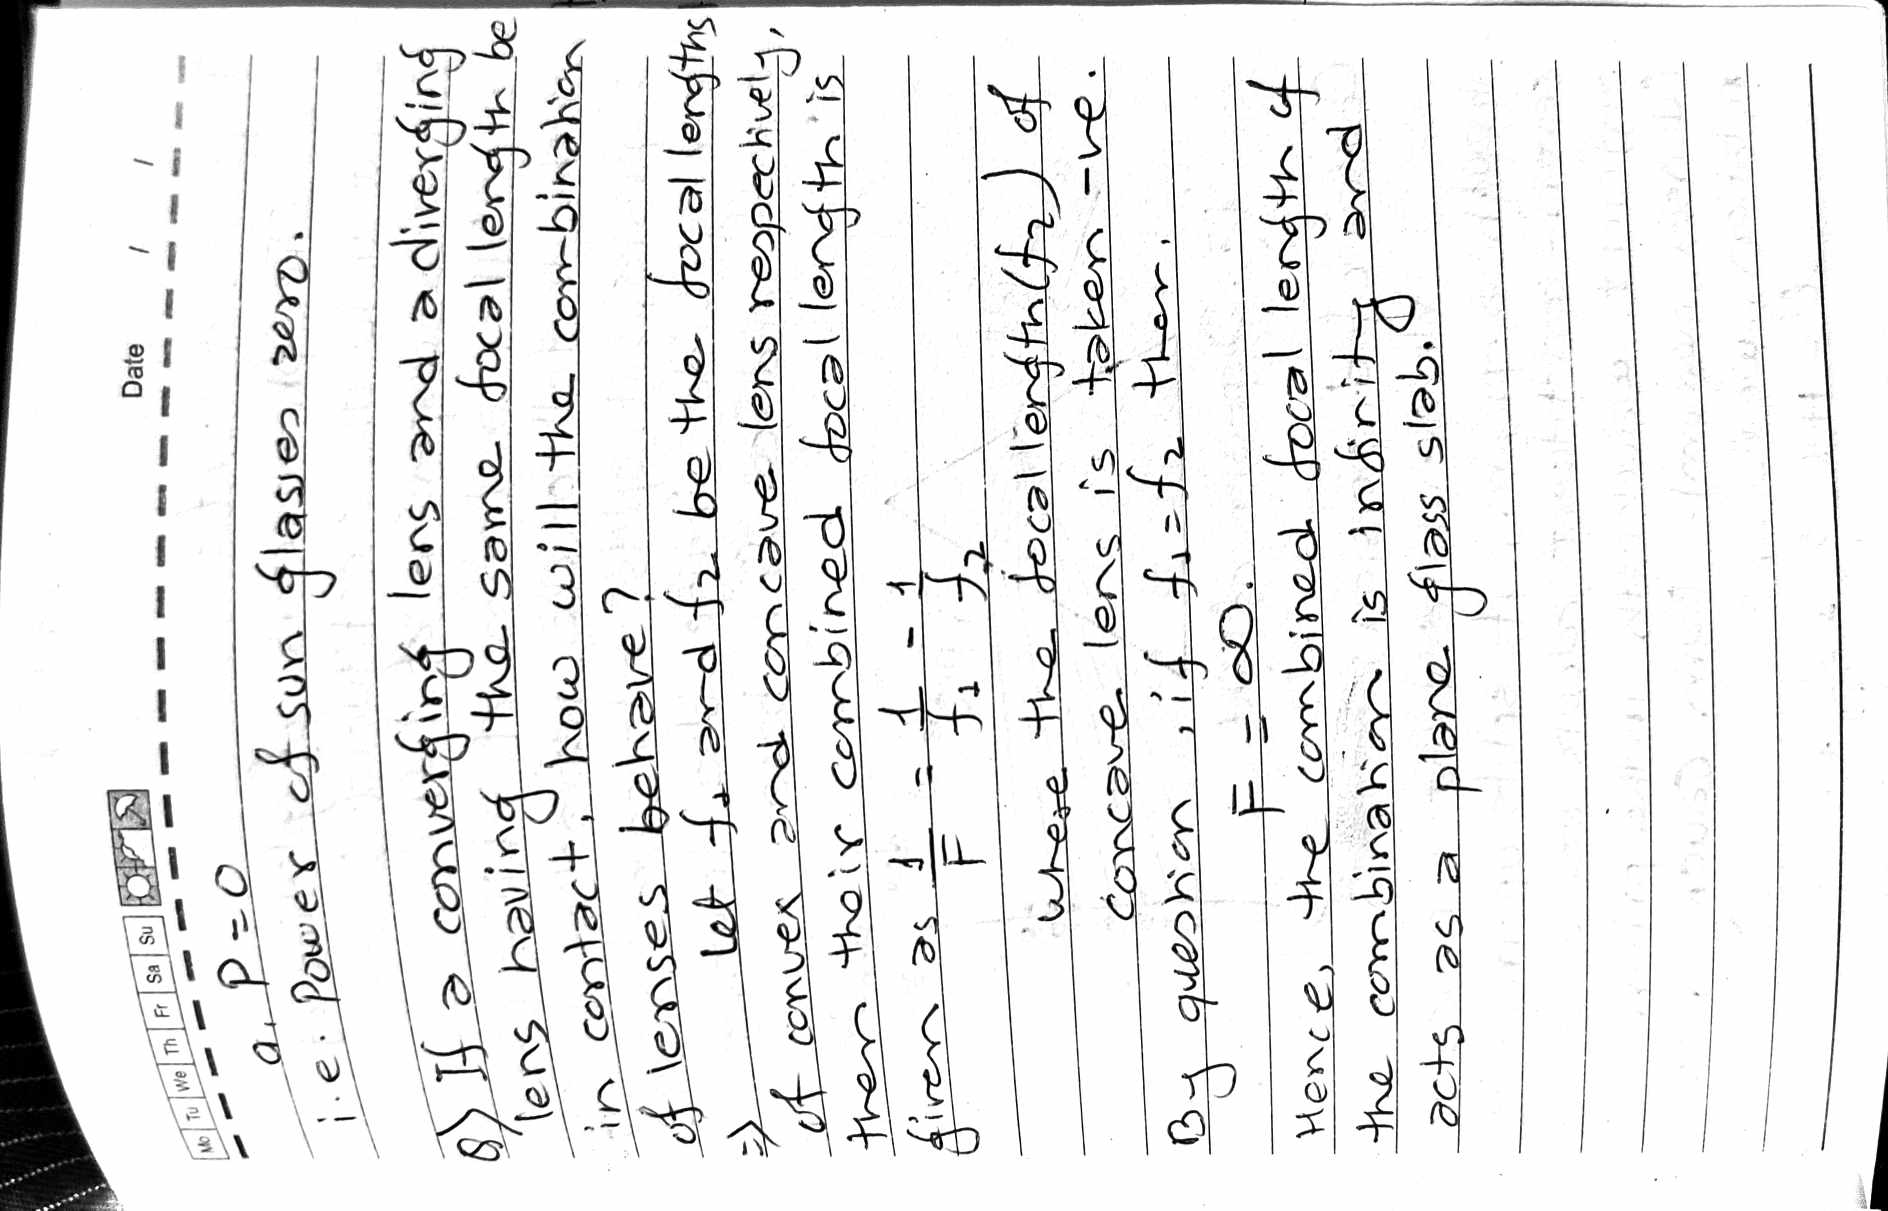 Mo Tu We Th Fr Sa Su
Date / /
a, P = 0
i.e. Power of sun glasses zero.
8) If a converging lens and a diverging
lens having the same focal length be
in contact, how will the combination
of lenses behave?
⇒ Let f₁ and f₂ be the focal lengths
of convex and concave lens respectively,
then their combined focal length is
given as 1/F = 1/f₁ - 1/f₂
where the focal length (f₂) of
concave lens is taken -ve.
By question, if f₁ = f₂ then.
F = ∞.
Hence, the combined focal length of
the combination is infinity and
acts as a plane glass slab.